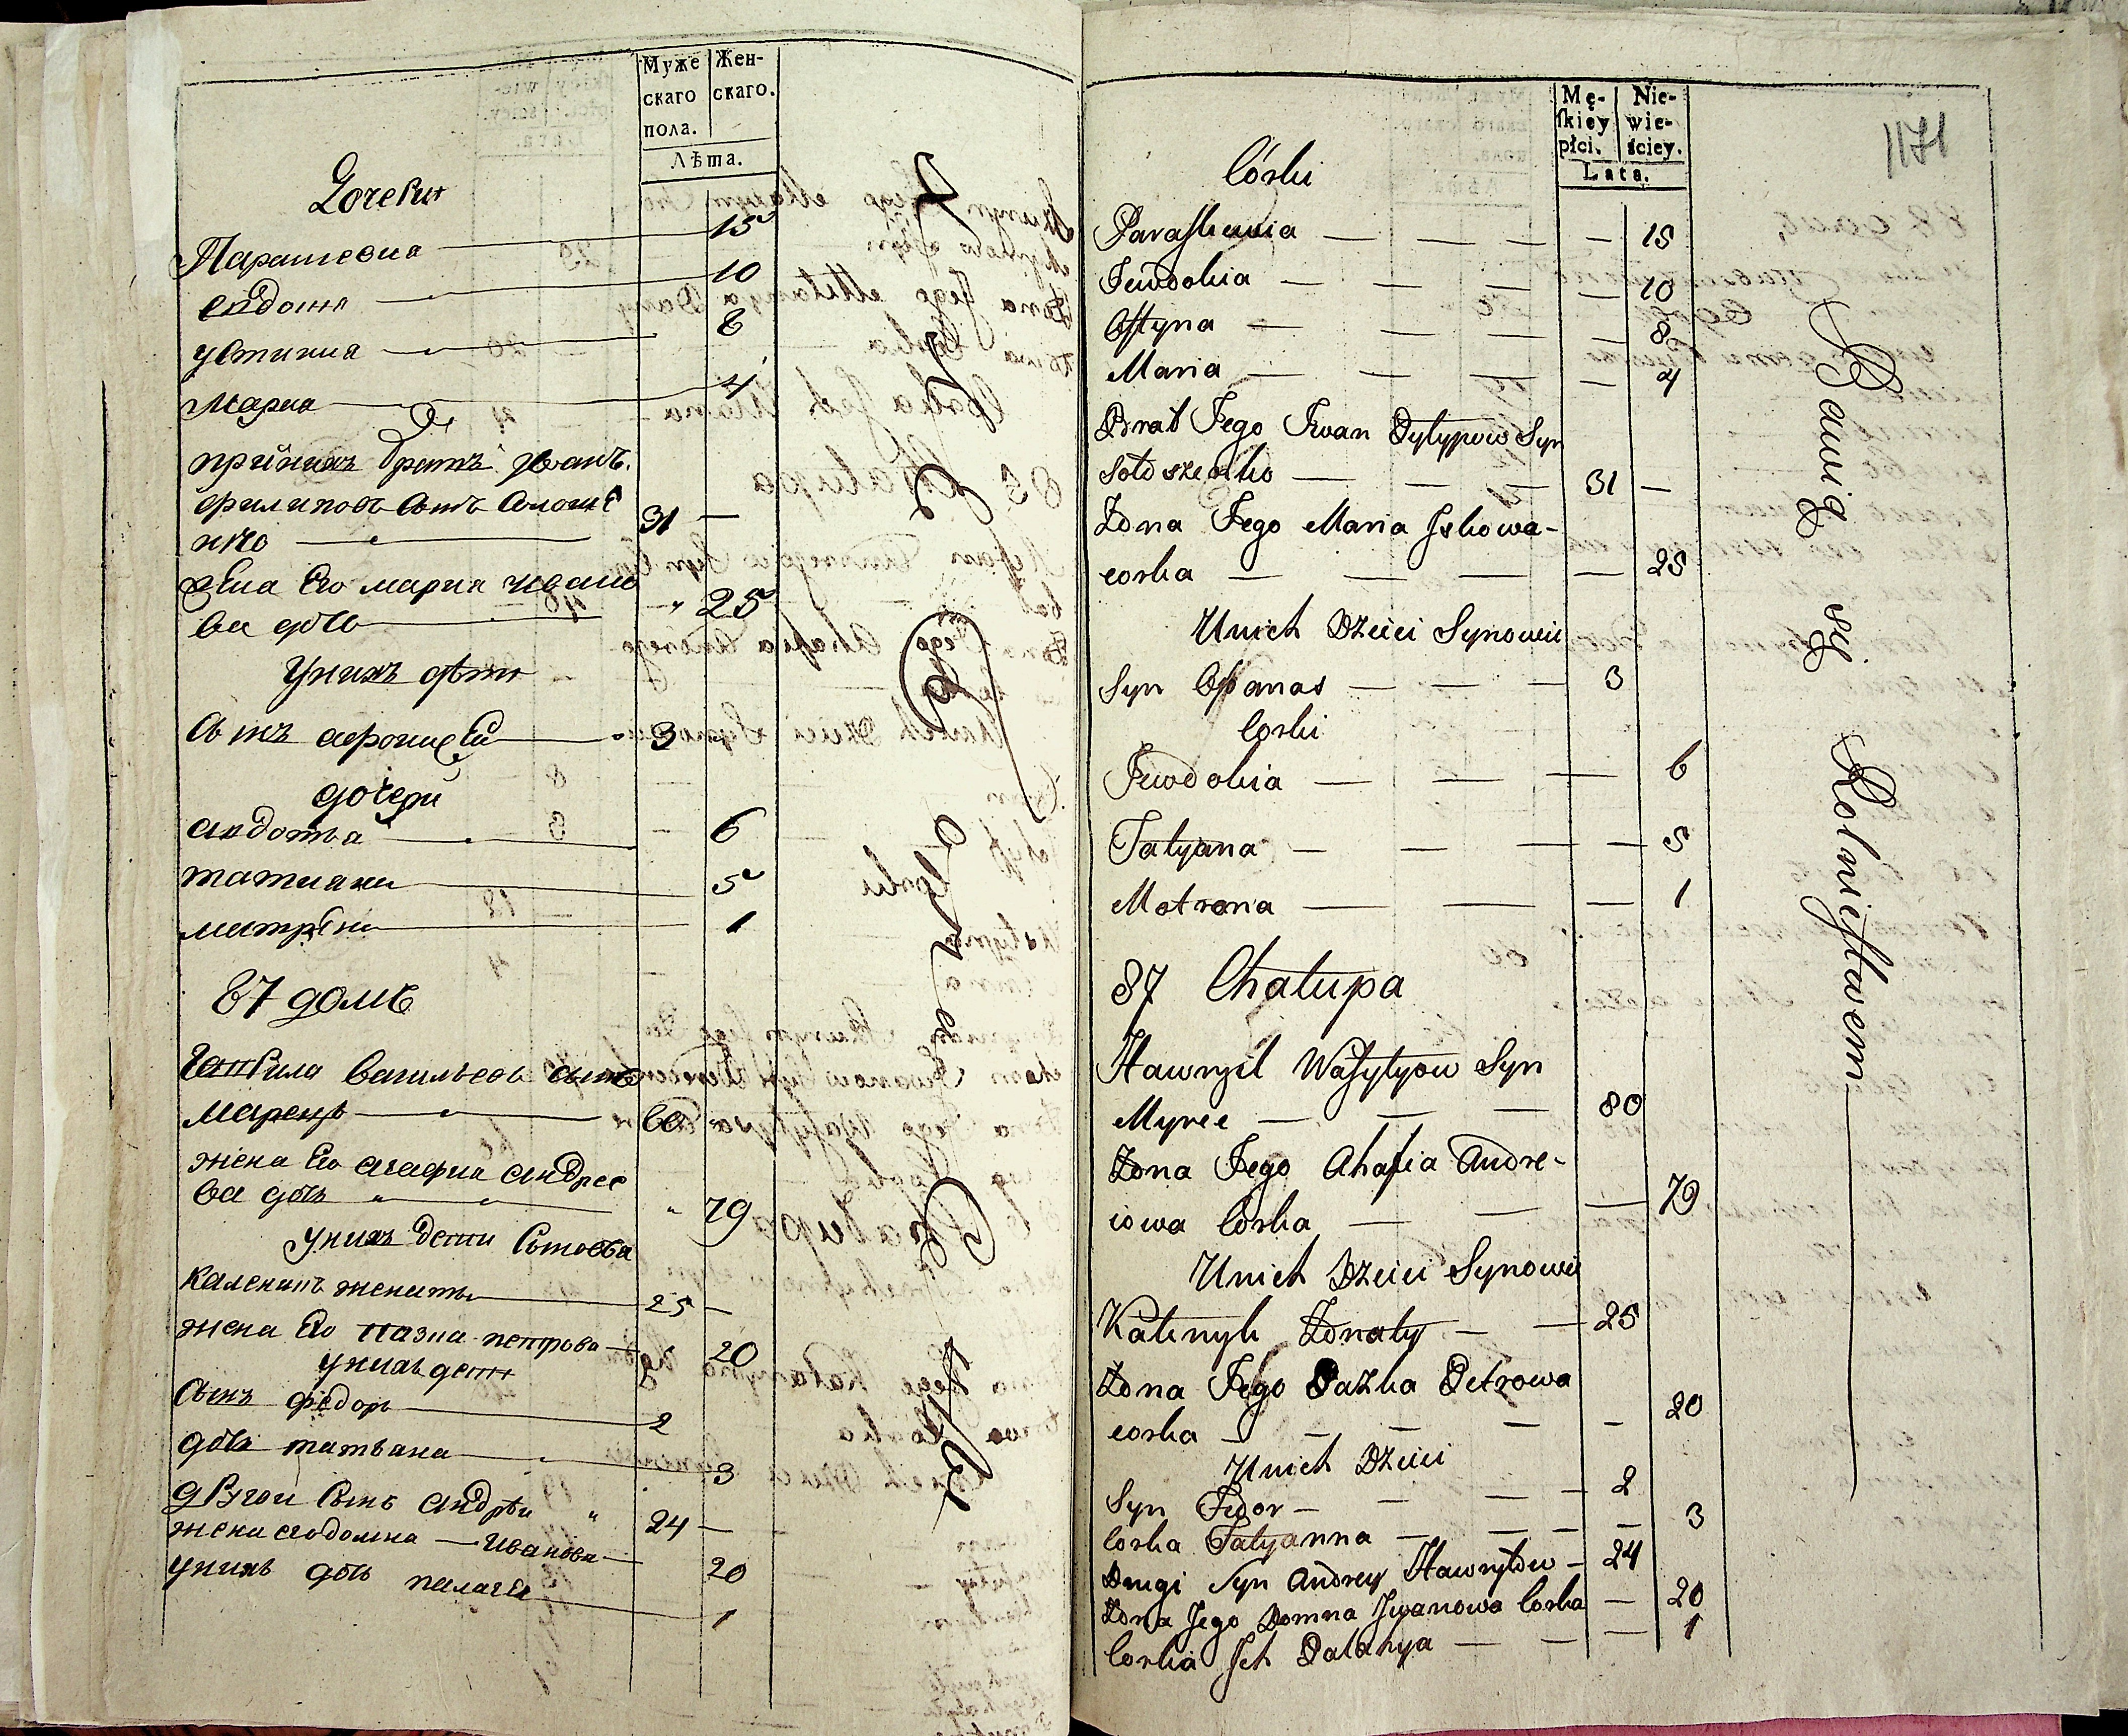 Муже
скаго
пола.
Жен-
скаго.
Лѣта.
Дочери
Парашевиа 15
евдокия 10
устиниа 8
Мариа 4
прийнихъ братъ Иванъ
филиповъ сынъ Солоше
нко 31 —
жена Его мариа ивано
ва дочь 25
унихъ дѣти
Сынъ афонасей 3
дочери
авдотьа 6
татиана 5
матрена 1
87 домъ
Гаврила Васильевъ сынъ
Маренц 80
жена Его агафиа андрее
ва дочь 79
унихъ дети Сыновьа
Каленикъ женатъ 25 —
жена Его пазна петрова 20
унихъ дети
Сынъ федоръ 2
дочь татьана 3
другои Сынъ андрѣи 24 —
жена его домна — Иванова 20
унихъ дочь палагеа 1
Mę-
skiey
płci.
Nie-
wie-
sciey.
Lata.
1171
Córki
Paraskewia — — — — 15
Jewdokia — — — — 10
Ostyna — — — — 8
Maria — — — — 4
Brat Jego Iwan Pylypow Syn
Sołoszenko — — — 31 —
Żona Jego Maria Iskowa-
corka — — — — 25
Unich Dzieci Synowie
Syn Opanas — — — 3
Corki
Jewdokia — — — 6
Tatyana — — — — 5
Motrona — — — 1
87 Chałupa
Hawrył Wasylyow Syn
Myree — — — 80
Żona Jego Ahafia Andre-
iowa Corka — — — 79
Unich Dzieci Synowie
Kałenyk Żonaty — — 25
Żona Jego Pazka Petrowa
corka — — — — — 20
Unich Dzieci
Syn Fedor — — — — 2
Corka Tatyanna — — — — 3
Drugi Syn Andrey Hawryłow — 24
Żona Jego Domna Iwanowa Corka — 20
Corka Ich Palahya — — — 1
Bawią się Rolnictwem